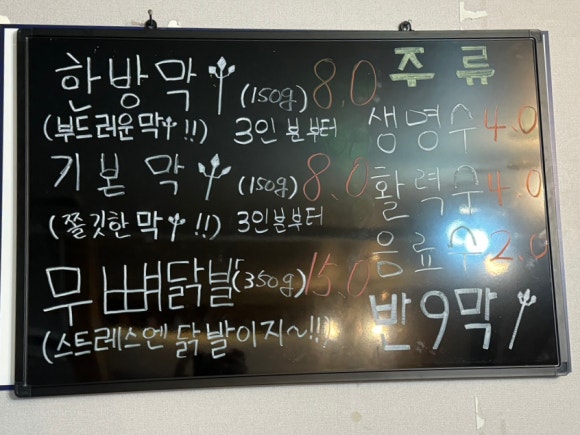 한방막 (150g) 8.0
(부드러운막 !!) 3인분부터
기본막 (150g) 8.0
(쫄깃한막 !!) 3인분부터
무뼈닭발 (350g) 15.0
(스트레스엔 닭발이지~!!)
주류
생명수 4.0
활력수 4.0
음료수 2.0
반9막